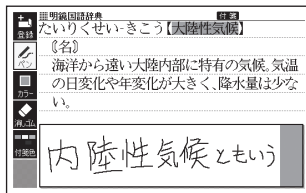 明鏡国語辞典 付箋
たいりくせい-きこう【大陸性気候】
〘名〙
海洋から遠い大陸内部に特有の気候。気温
の日変化や年変化が大きく、降水量は少な
い。
登録
ペン
カラー
消しゴム
付箋色
内陸性気候ともいう